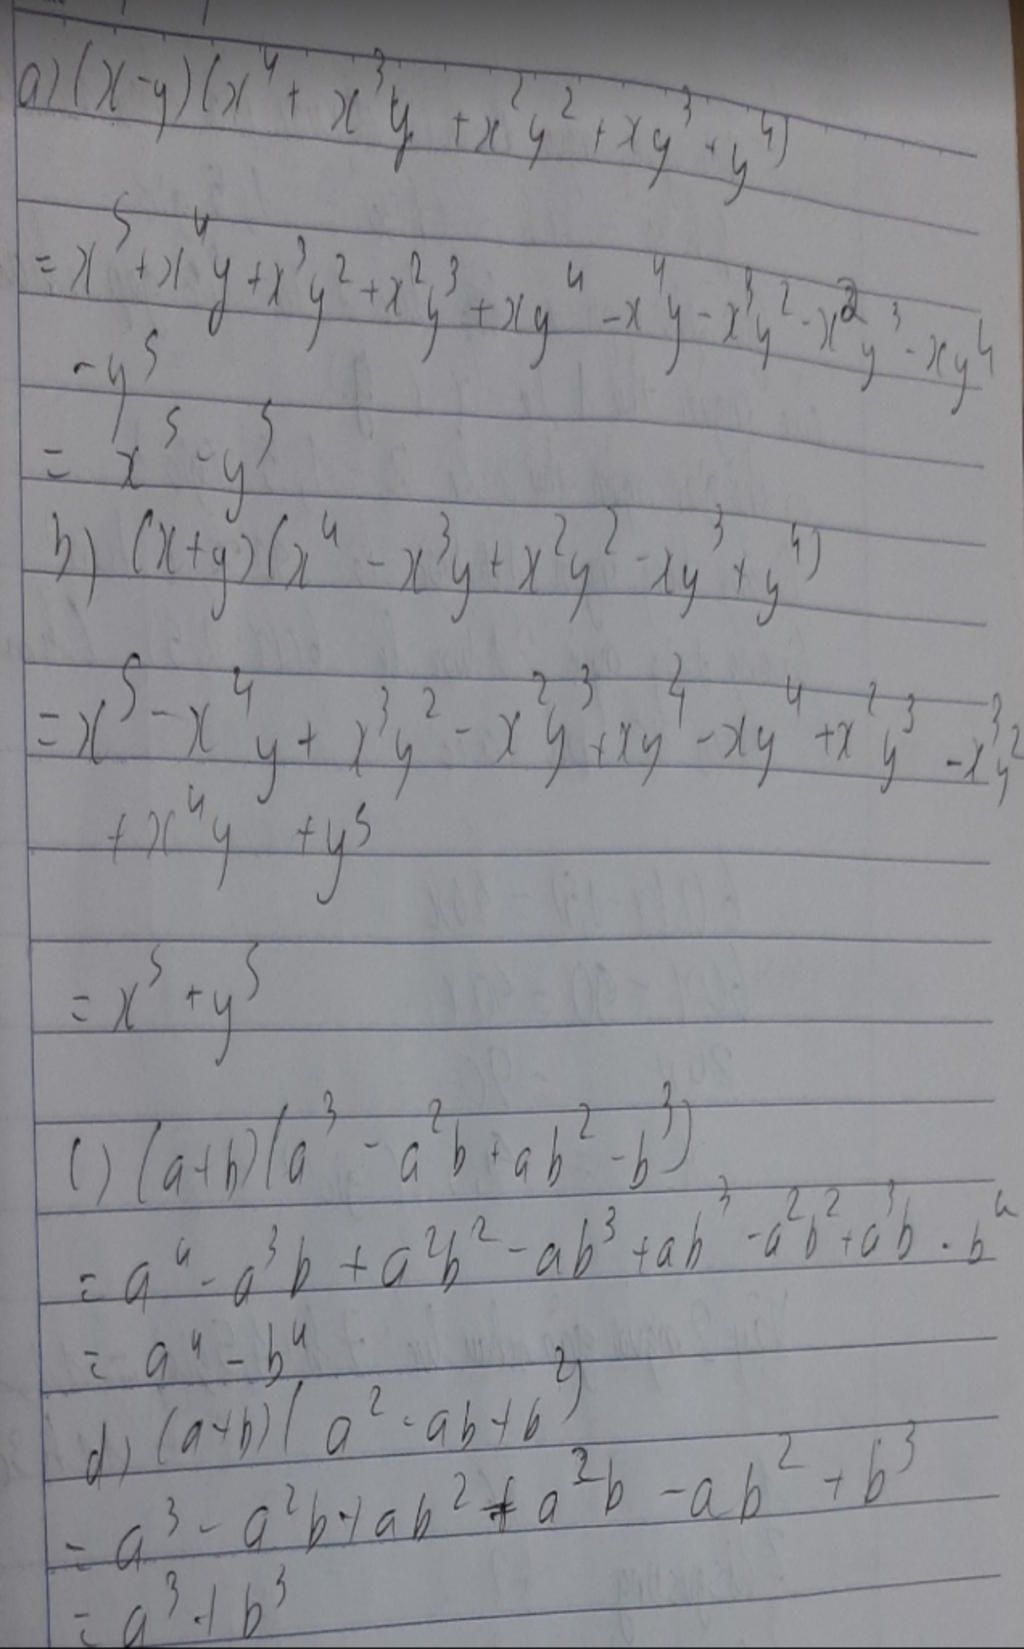 a) (x-y)(x⁴ + x³y + x²y² + xy³ + y⁴)
= x⁵ + x⁴y + x³y² + x²y³ + xy⁴ - x⁴y - x³y² - x²y³ - xy⁴
- y⁵
= x⁵ - y⁵
b) (x+y)(x⁴ - x³y + x²y² - xy³ + y⁴)
= x⁵ - x⁴y + x³y² - x²y³ + xy⁴ - xy⁴ + x²y³ - x³y²
+ x⁴y + y⁵
= x⁵ + y⁵
c) (a+b)(a³ - a²b + ab² - b³)
= a⁴ - a³b + a²b² - ab³ + ab³ - a²b² + a³b - b⁴
= a⁴ - b⁴
d) (a+b)(a² - ab + b²)
= a³ - a²b + ab² + a²b - ab² + b³
= a³ + b³